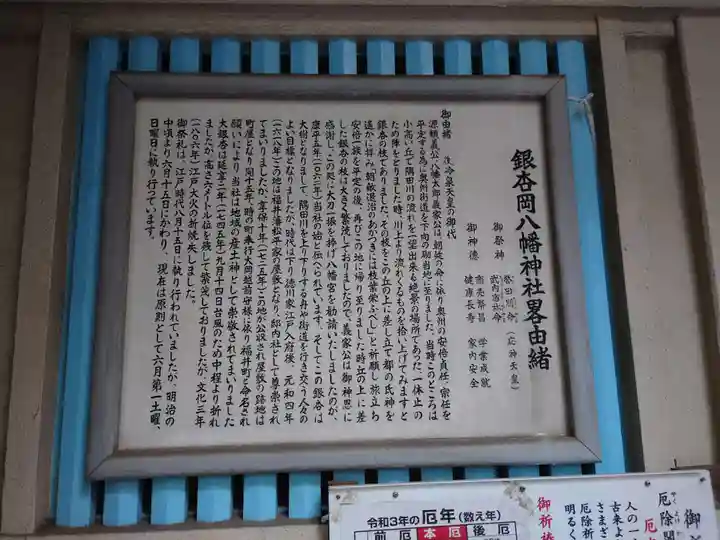 銀杏岡八幡神社畧由緒
御祭神 誉田別命(応神天皇)
武内宿祢命
御神徳 商売繁昌 学業成就
健康長寿 家内安全
御由緒 後冷泉天皇の御代
源頼義公・八幡太郎義家公は、朝廷の命に依り奥州の安倍貞任、宗任を
平定する為に奥州街道を下向の砌当地に至りました。当時このところは
小高い丘で隅田川の流れを一望出来る絶景の場所であった。一休止の
ため陣をとりました時、川上より流れくるものを拾い上げてみますと
銀杏の枝でありました。その枝をこの丘の上に差し立て都の氏神を
遥かに拝み、朝敵退治のあかつきには枝葉栄ふべしと祈願し旅立ち
安倍一族を平定の後、再びこの地に帰り至りました時丘の上に差
した銀杏の枝は大きく繁茂しておりましたので、義家公は御神恩に
感謝し、この処に太刀一振を捧げ八幡宮を勧請いたしましたのが、
康平五年(一〇六二年)当社の始と伝へられています。そしてこの銀杏は
大樹となりまして、隅田川を上り下りする舟や街道を行き交う人々の
よい目標となりましたが、時代は下り徳川家江戸入府後、元和四年
(一六一八年)この地は福井藩松平家の屋敷となり、邸内社として尊崇され
てまいりましたが、享保十年(一七二五年)この地が公収され屋敷の跡地は
町屋となり同十五年、時の町奉行大岡越前守様に依り福井町と命名され
願いにより、当社は地域の産土神として崇敬されてまいりました
大銀杏は延享二年(一七四五年)九月十四日台風のため中程より折れ
ましたが、高さ六メートル位を残して繁茂しておりましたが、文化三年
(一八〇六年)江戸大火の折焼失しました。
御祭礼は、江戸時代八月十五日に執り行われていましたが、明治の
中頃より六月十五日にかわり、現在は原則として六月第一土曜、
日曜日に執り行っています。
令和3年の厄年(数え年)
前厄 本厄 後厄
御祈
厄除開
人の一
古来よ
さまざ
厄除祈
明るく
御祈